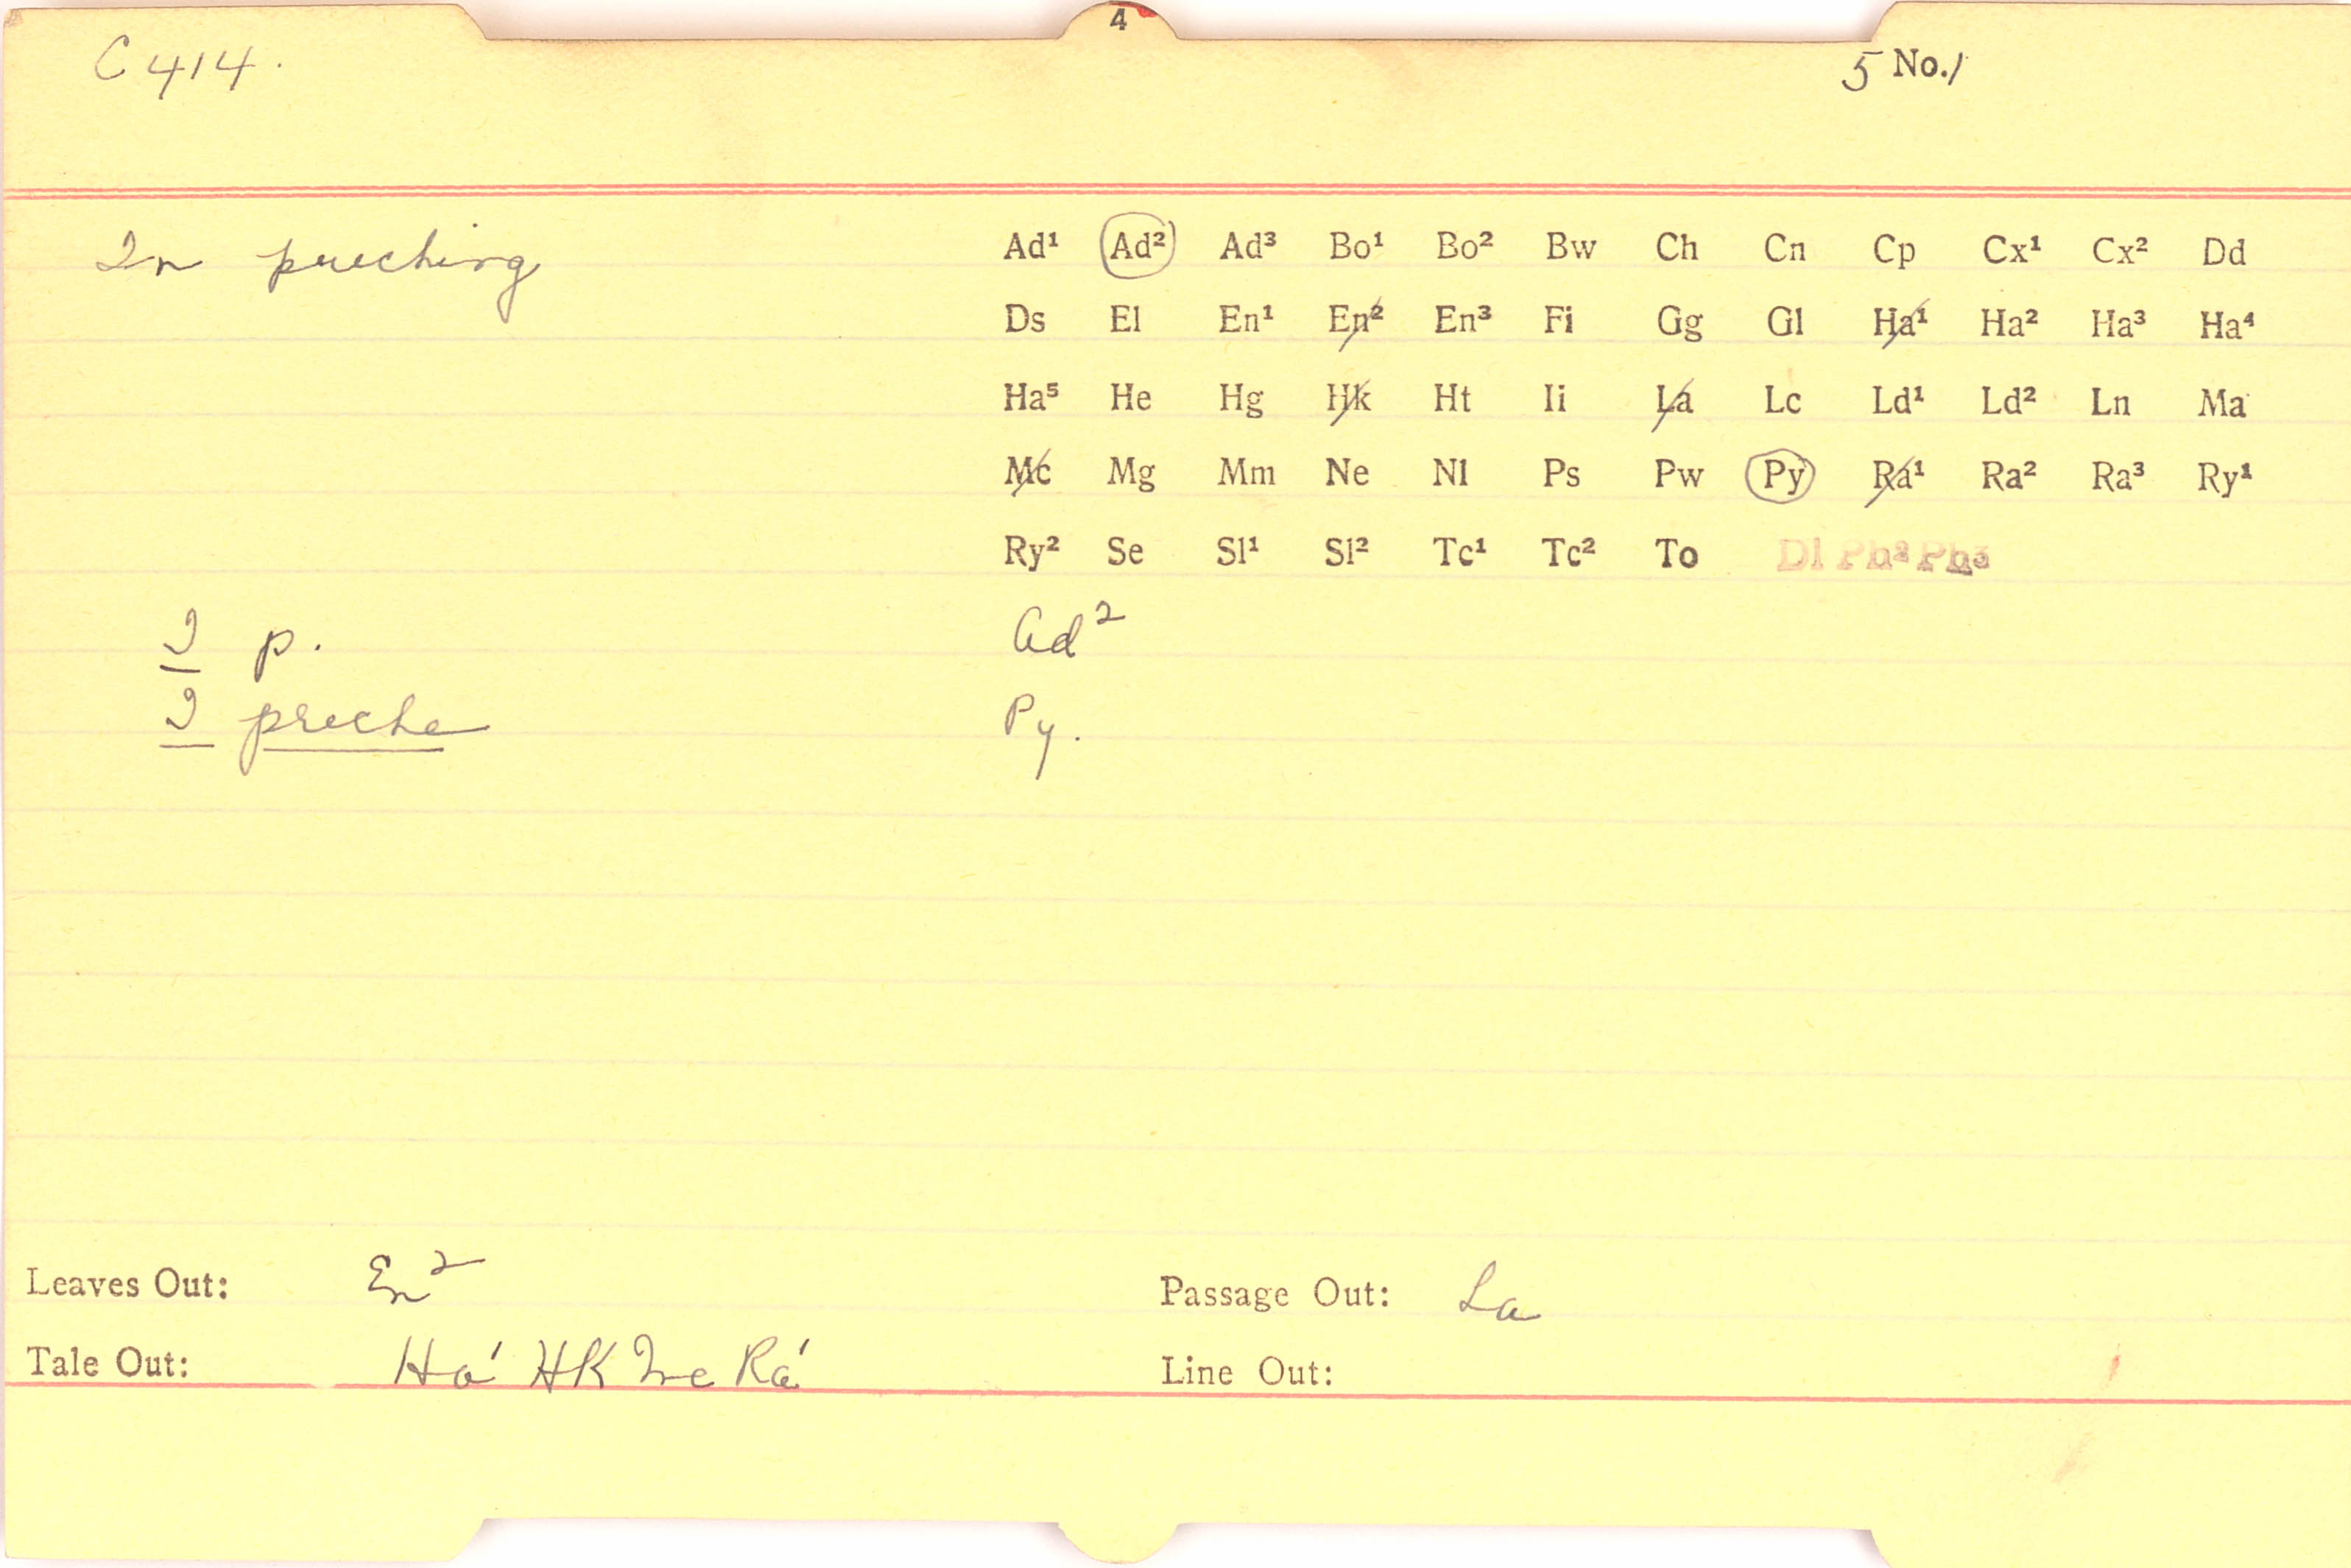 4
C 414.
5 No. 1
In preching
Ad¹ Ad² Ad³ Bo¹ Bo² Bw Ch Cn Cp Cx¹ Cx² Dd
Ds El En¹ En² En³ Fi Gg Gl Ha¹ Ha² Ha³ Ha⁴
Ha⁵ He Hg Hk Ht Ii La Lc Ld¹ Ld² Ln Ma
Mc Mg Mm Ne Nl Ps Pw Py Ra¹ Ra² Ra³ Ry¹
Ry² Se Sl¹ Sl² Tc¹ Tc² To Dl Ph² Ph³
I p. Ad²
I preche Py.
Leaves Out: En² Passage Out: La
Tale Out: Ha¹ Hk Mc Ra¹ Line Out: